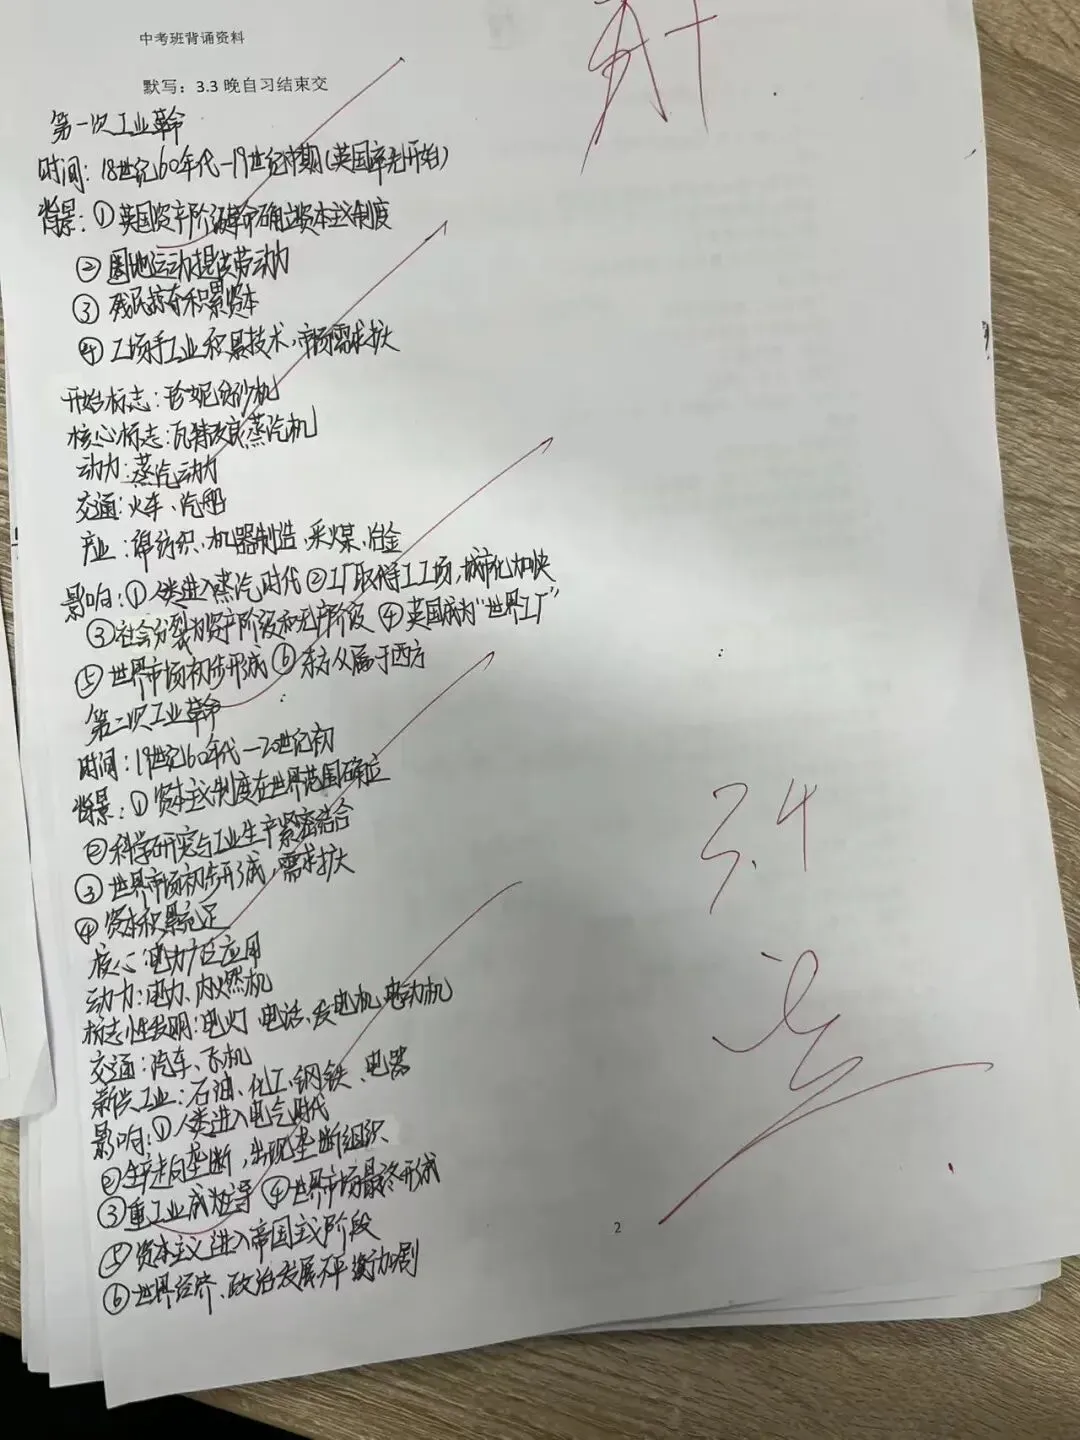 中考班背诵资料
默写：3.3 晚自习结束交
第一次工业革命
时间：18世纪60年代—19世纪中期(英国率先开始)
背景：①英国资产阶级革命确立资本主义制度
②圈地运动提供劳动力
③残民掠夺积累资本
④工场手工业积累技术，市场需求扩大
开始标志：珍妮纺纱机
核心标志：瓦特改良蒸汽机
动力：蒸汽动力
交通：火车、汽船
产业：棉纺织、机器制造、采煤、冶金
影响：①人类进入蒸汽时代②工厂取代手工工场，城市化加快
③社会分裂为资产阶级和无产阶级 ④英国成为“世界工厂”
⑤世界市场初步形成⑥东方从属于西方
第二次工业革命
时间：19世纪60年代—20世纪初
背景：①资本主义制度在世界范围确立
②科学研究与工业生产紧密结合
③世界市场初步形成，需求扩大
④资本积累充足
核心：电力广泛应用
动力：电力、内燃机
标志性发明：电灯、电话、发电机、电动机
交通：汽车、飞机
新兴工业：石油、化工、钢铁、电器
影响：①人类进入电气时代
②生产走向垄断，出现垄断组织
③重工业成为主导 ④世界市场最终形成
⑤资本主义进入帝国主义阶段
⑥世界经济、政治发展不平衡加剧
3.4
2